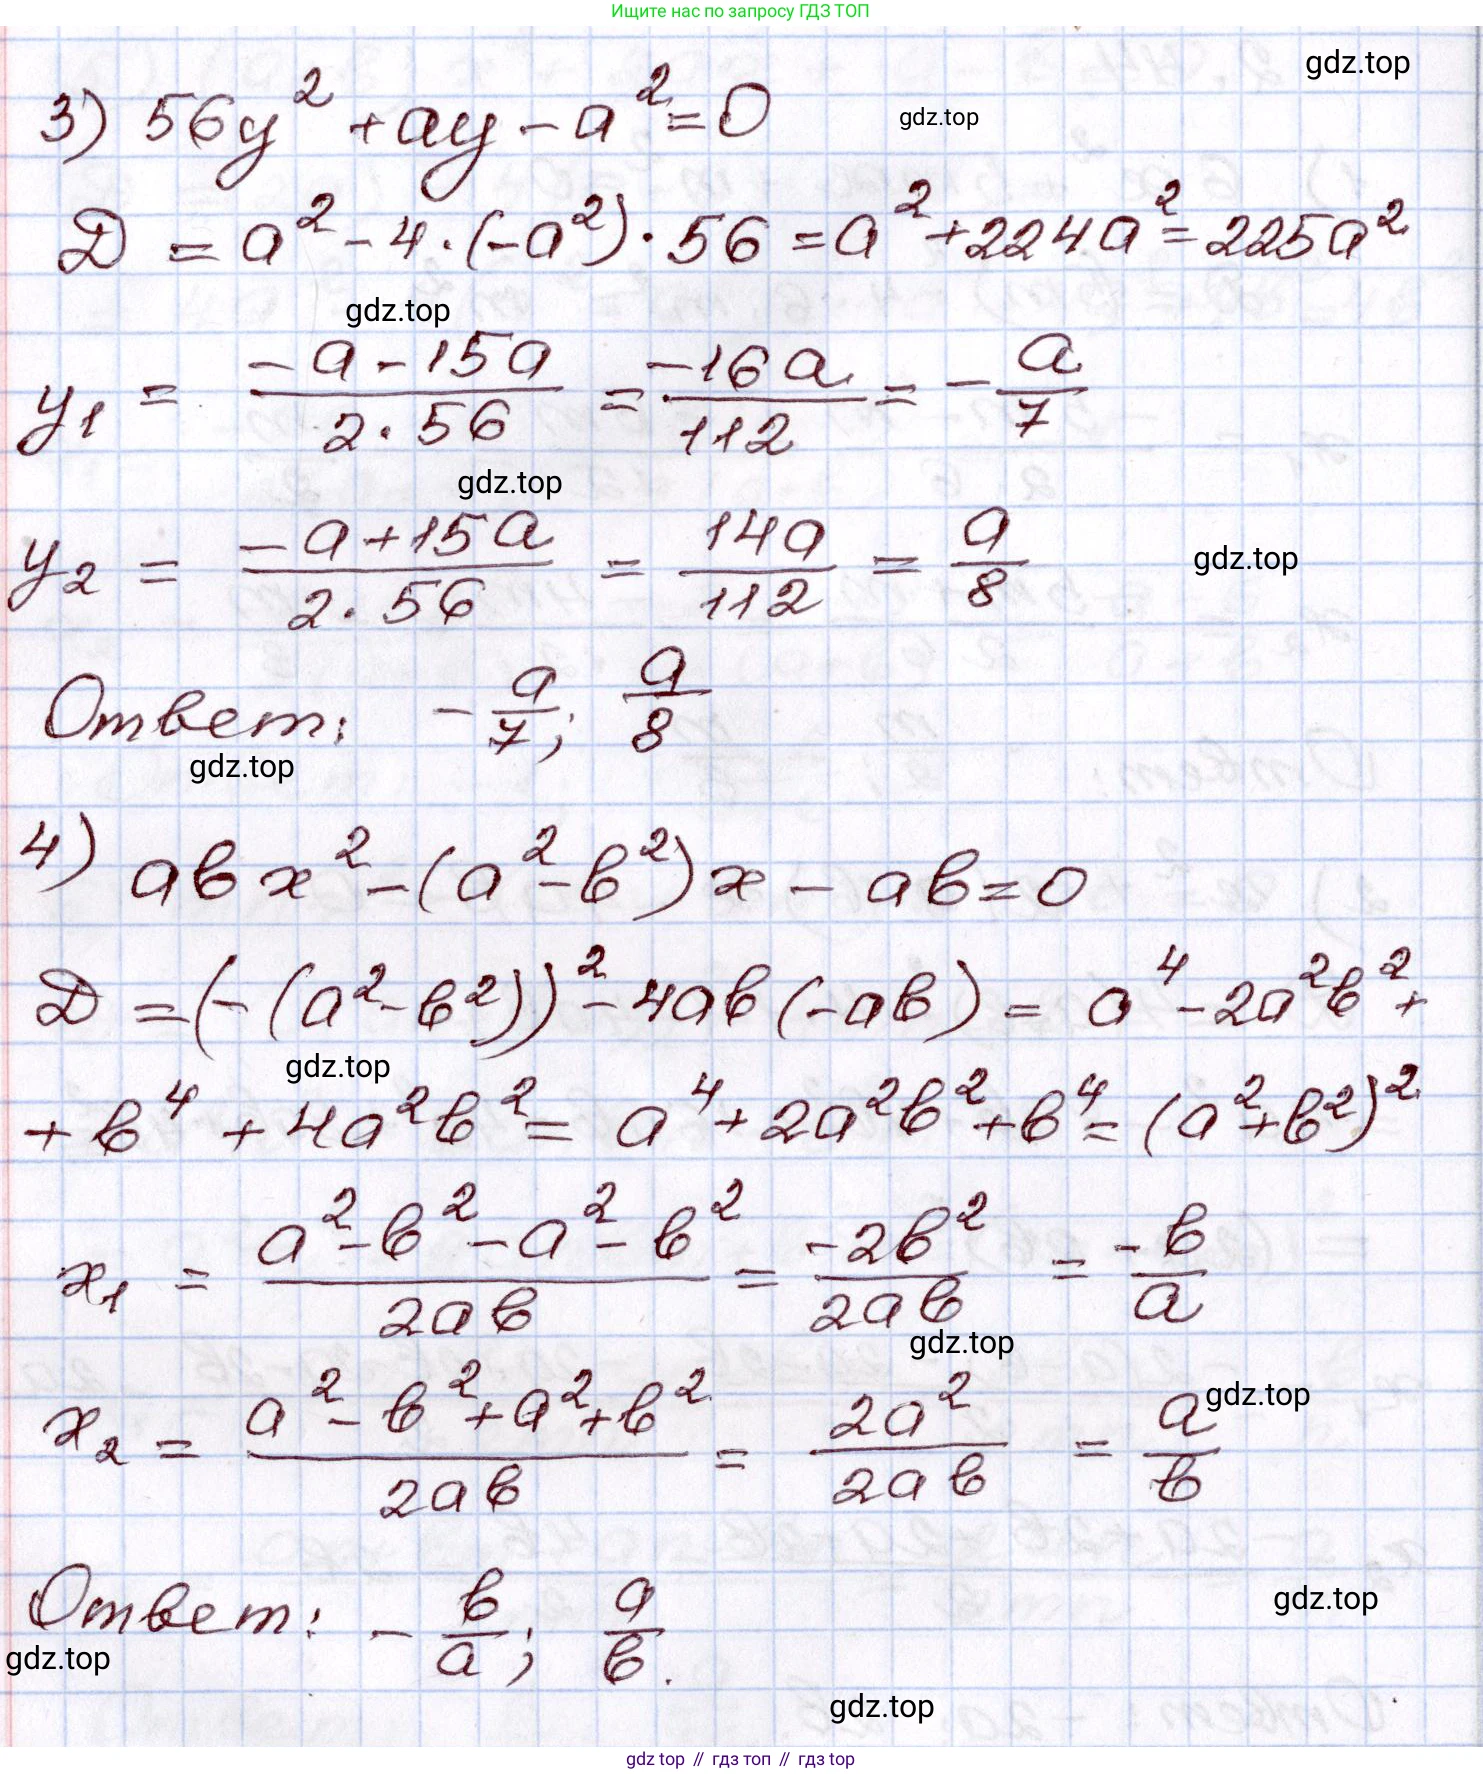 Ищите нас по запросу ГДЗ ТОП
gdz.top
3) 56y² + ay - a² = 0
gdz.top
Д = a² - 4 · (-a²) · 56 = a² + 224a² = 225a²
gdz.top
y₁ = (-a - 15a)/(2 · 56) = (-16a)/112 = - a/7
gdz.top
y₂ = (-a + 15a)/(2 · 56) = 14a/112 = a/8
gdz.top
Ответ: - a/7; a/8
gdz.top
4) aвx² - (a² - в²)x - aв = 0
Д = (-(a² - в²))² - 4aв(-aв) = a⁴ - 2a²в² +
gdz.top
+ в⁴ + 4a²в² = a⁴ + 2a²в² + в⁴ = (a² + в²)²
x₁ = (a² - в² - a² - в²)/(2aв) = (-2в²)/(2aв) = - в/a
gdz.top
gdz.top
x₂ = (a² - в² + a² + в²)/(2aв) = 2a²/(2aв) = a/в
Ответ: - в/a; a/в.
gdz.top
gdz.top
gdz.top
gdz top // гдз топ // gdz top